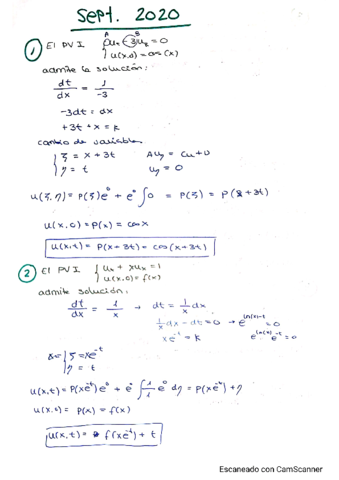 Sept. 2020
1 El PVI { Aut -3ux = 0
u(x,0) = cos(x)
admite la solución:
dt/dx = 1/-3
-3dt = dx
+3t + x = k
cambio de variables
{ ξ = x + 3t
η = t
uη = 0
u(ξ,η) = P(ξ)e⁰ + e⁰∫0 = P(ξ) = P(x+3t)
u(x,0) = P(x) = cos x
u(x,t) = P(x+3t) = cos(x+3t)
2 El PVI { ut + xux = 1
u(x,0) = f(x)
admite solución:
dt/dx = 1/x → dt = 1/x dx
1/x dx - dt = 0
xe^-t = k
{ ξ = xe^-t
η = t
u(x,t) = P(xe^-t)e⁰ + e⁰∫1/1 e⁰ dη = P(xe^-t) + η
u(x,0) = P(x) = f(x)
u(x,t) = f(xe^-t) + t
Escaneado con CamScanner